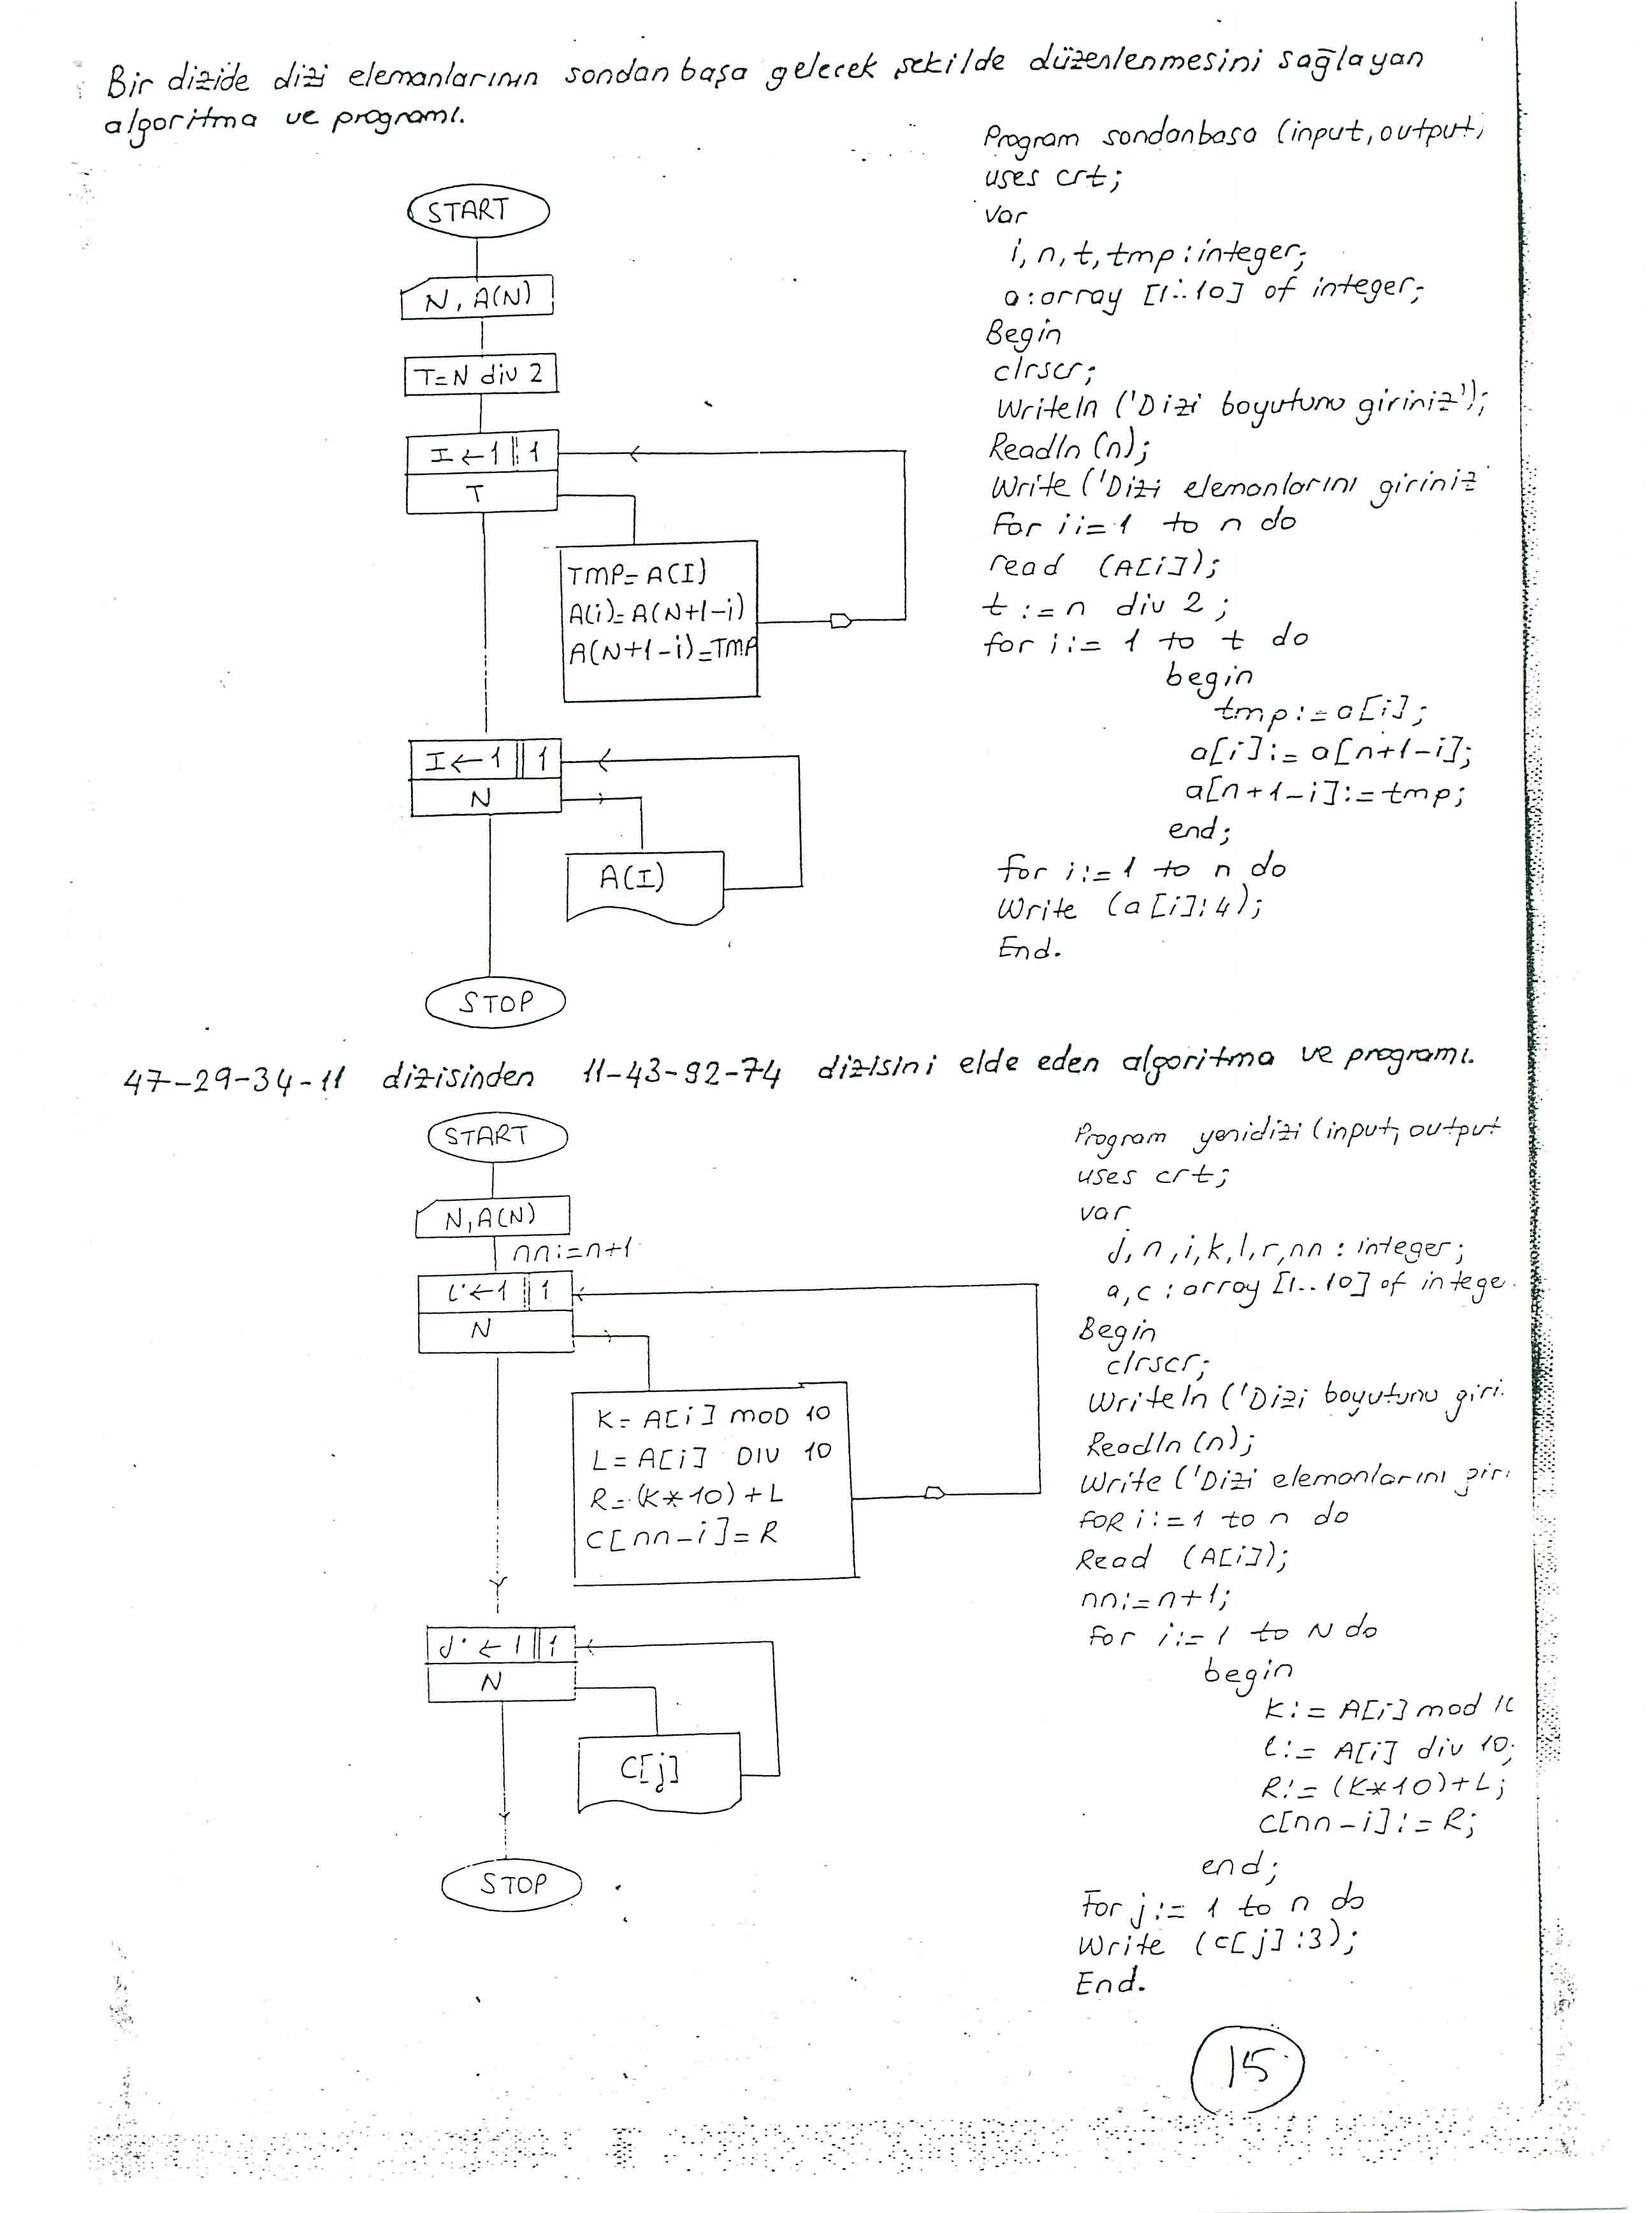 Bir dizide dizi elemanlarının sondan başa gelecek şekilde düzenlenmesini sağlayan
algoritma ve programı.
START
N, A(N)
T=N div 2
I←1 || 1
T
TMP=A(I)
A(i)=A(N+1-i)
A(N+1-i)=TMP
I←1 || 1
N
A(I)
STOP
Program sondanbasa (input, output)
uses crt;
var
i, n, t, tmp : integer;
a : array [1..10] of integer;
Begin
clrscr;
Writeln ('Dizi boyutunu giriniz');
Readln (n);
Write ('Dizi elemanlarını giriniz
For i:=1 to n do
read (A[i]);
t := n div 2;
for i := 1 to t do
begin
tmp := a[i];
a[i] := a[n+1-i];
a[n+1-i] := tmp;
end;
for i := 1 to n do
Write (a[i]:4);
End.
47-29-34-11 dizisinden 11-43-92-74 dizisini elde eden algoritma ve programı.
START
N, A(N)
nn:=n+1
i←1 || 1
N
K= A[i] MOD 10
L= A[i] DIV 10
R=(K*10)+L
C[nn-i]=R
j←1 || 1
N
C[j]
STOP
Program yenidizi (input, output
uses crt;
var
j, n, i, k, l, r, nn : integer;
a, c : array [1..10] of intege
Begin
clrscr;
Writeln ('Dizi boyutunu giri
Readln (n);
Write ('Dizi elemanlarını giri
FOR i:=1 to n do
Read (A[i]);
nn:=n+1;
for i:=1 to N do
begin
K:= A[i] mod 10
l:= A[i] div 10;
R:= (K*10)+L;
C[nn-i]:=R;
end;
For j:= 1 to n do
Write (c[j]:3);
End.
15